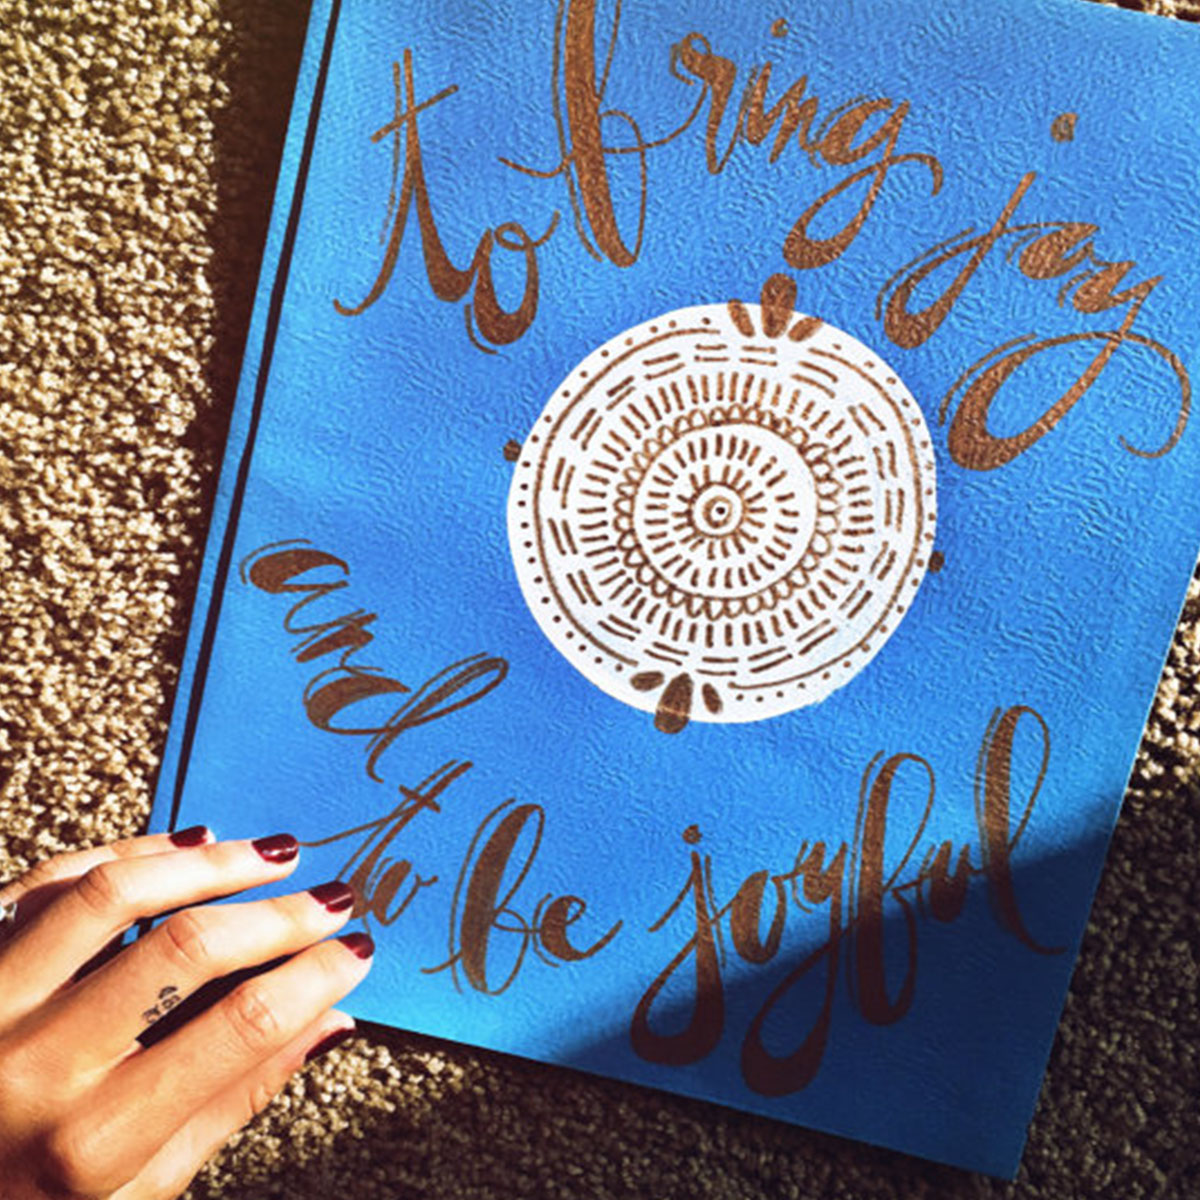 to bring joy
and to be joyful